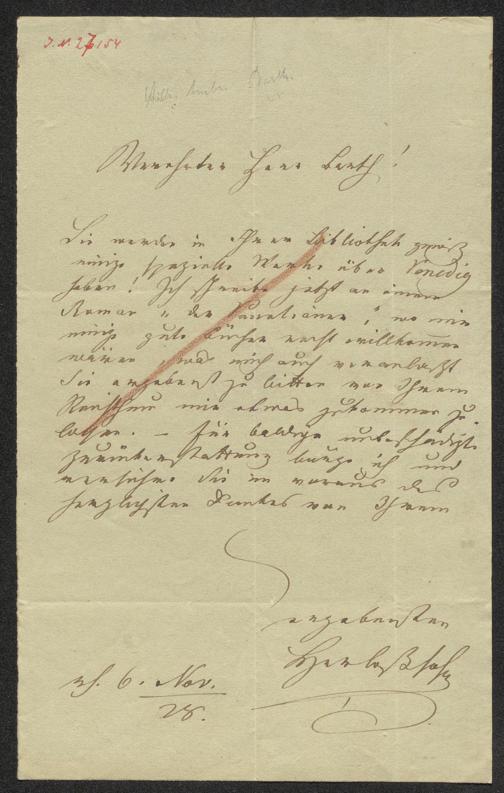 J.N. 27154
Barth.
Verehrter Herr Barth!
Sie werden in Ihrer Bibliothek gewiß
einige spezielle Werke über Venedig
haben! Ich schreibe jetzt an einem
Roman „der Venetianer" wo mir
einige gute Bücher recht willkommen
wären, was mich auch veranlaßt
Sie ergebenst zu bitten von Ihrem
Reichthum mir etwas zukommen zu
lassen. – Für baldige unbeschädigte
Zurückerstattung bürge ich und
versichere Sie im voraus des
herzlichsten Dankes von Ihrem
ergebensten
Herloßsohn
6. Nov.
28.